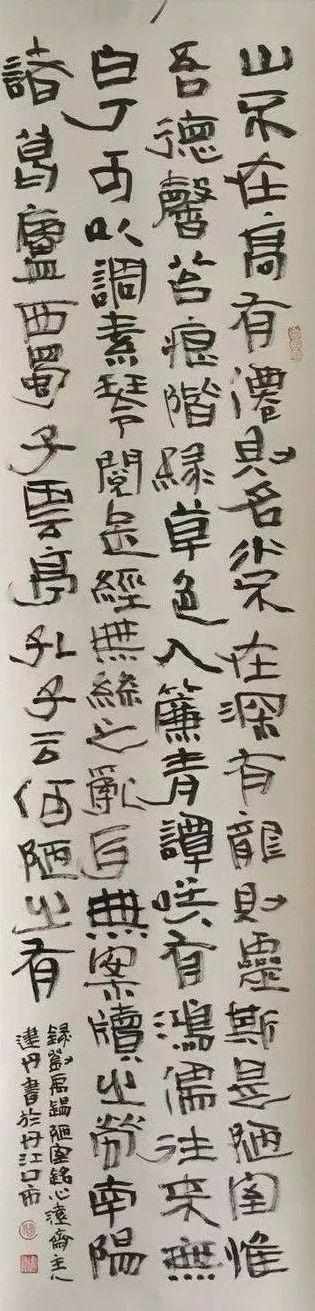 山不在高有僊則名水不在深有龍則靈斯是陋室惟
吾德馨苔痕階綠草色入簾青譚咲有鴻儒往來無
白丁可以調素琴閱金經無絲之亂耳無案牘之勞南陽
諸葛廬西蜀子雲亭孔子云何陋之有
錄劉禹錫陋室銘心遠齋主人
建丹書於丹江口市